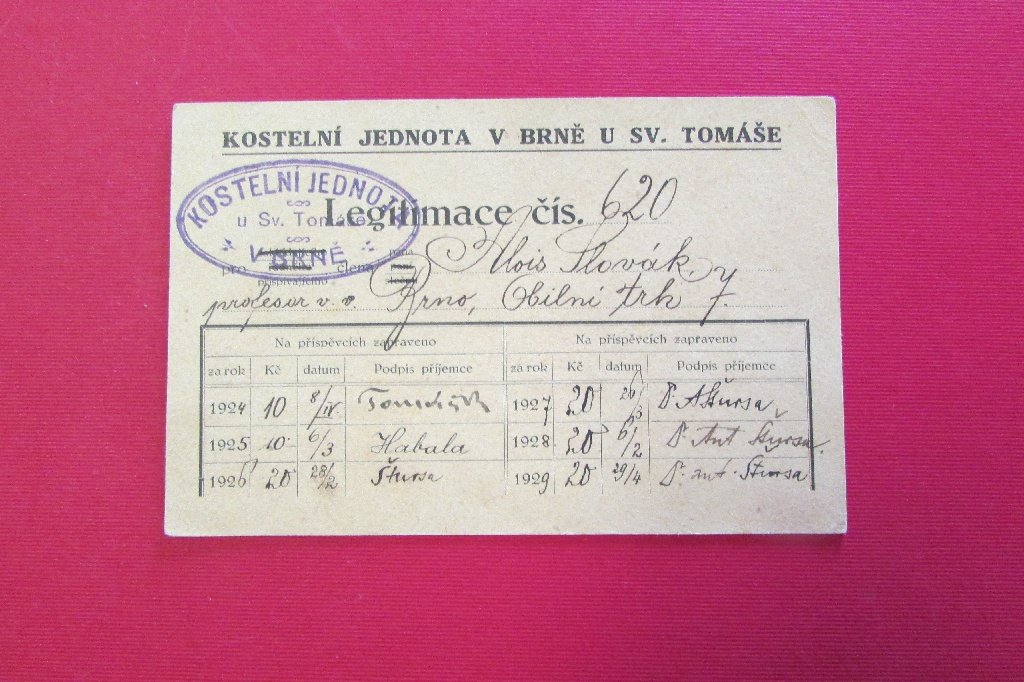 KOSTELNÍ JEDNOTA V BRNĚ U SV. TOMÁŠE
KOSTELNÍ JEDNOTA
u Sv. Tomáše
V BRNĚ
Legitimace čís. 620
pro přispívajícího člena pána Alois Slovák,
profesor v. v. Brno, Obilní trh 7.
Na příspěvcích zapraveno Na příspěvcích zapraveno
za rok Kč datum Podpis příjemce za rok Kč datum Podpis příjemce
1924 10 8/IV. 1927 20 /3 Dr AŠtursa
1925 10 6/3 Habala 1928 20 6/2 Dr. Ant Štursa.
1926 20 28/2 Štursa 1929 20 29/4 Dr. ant. Štursa